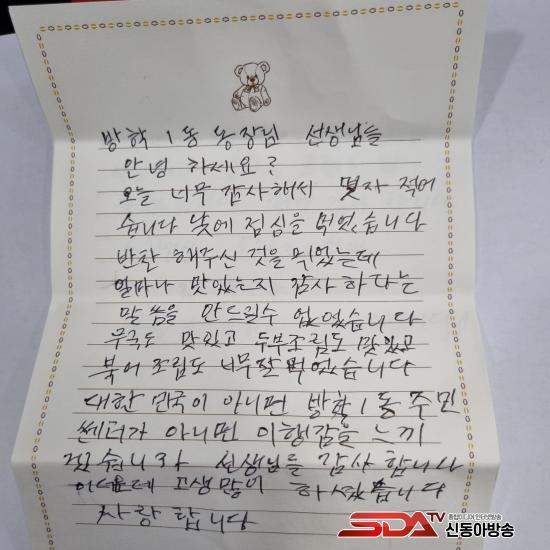 방학 1동 동장님 선생님들
안녕 하세요?
오늘 너무 감사해서 몇자 적어
습니다 낮에 점심을 먹었습니다
반찬 해주신 것을 먹었는데
얼마나 맛있는지 감사 하다는
말씀을 안드릴수 없었습니다
무국도 맛있고 두부조림도 맛있고
북어 조림도 너무잘 먹었습니다
대한 민국이 아니면 방학1동 주민
쎈터가 아니면 이행감을 느끼
선생님들 감사 합니다
고생많이 하셨습니다
사랑 합니다
SDATV
종합미디어 인터넷방송
신동아방송